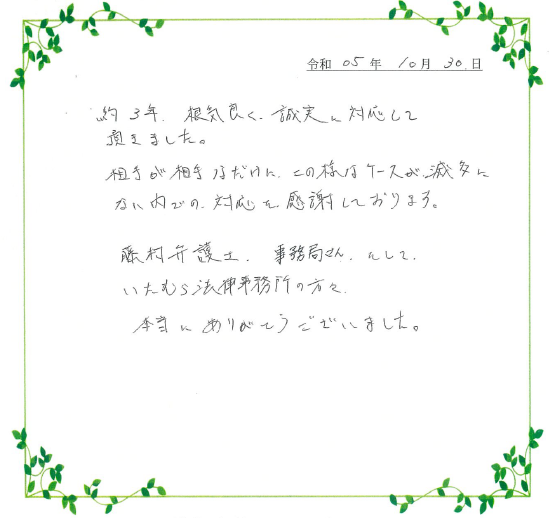 令和 05年 10月 30日
約3年、根気良く、誠実に対応して
頂きました。
相手が相手なだけに、この様なケースが、滅多に
ない内での、対応を感謝しております。
藤村弁護士、事務局さん、そして、
いたむら法律事務所の方々、
本当にありがとうございました。